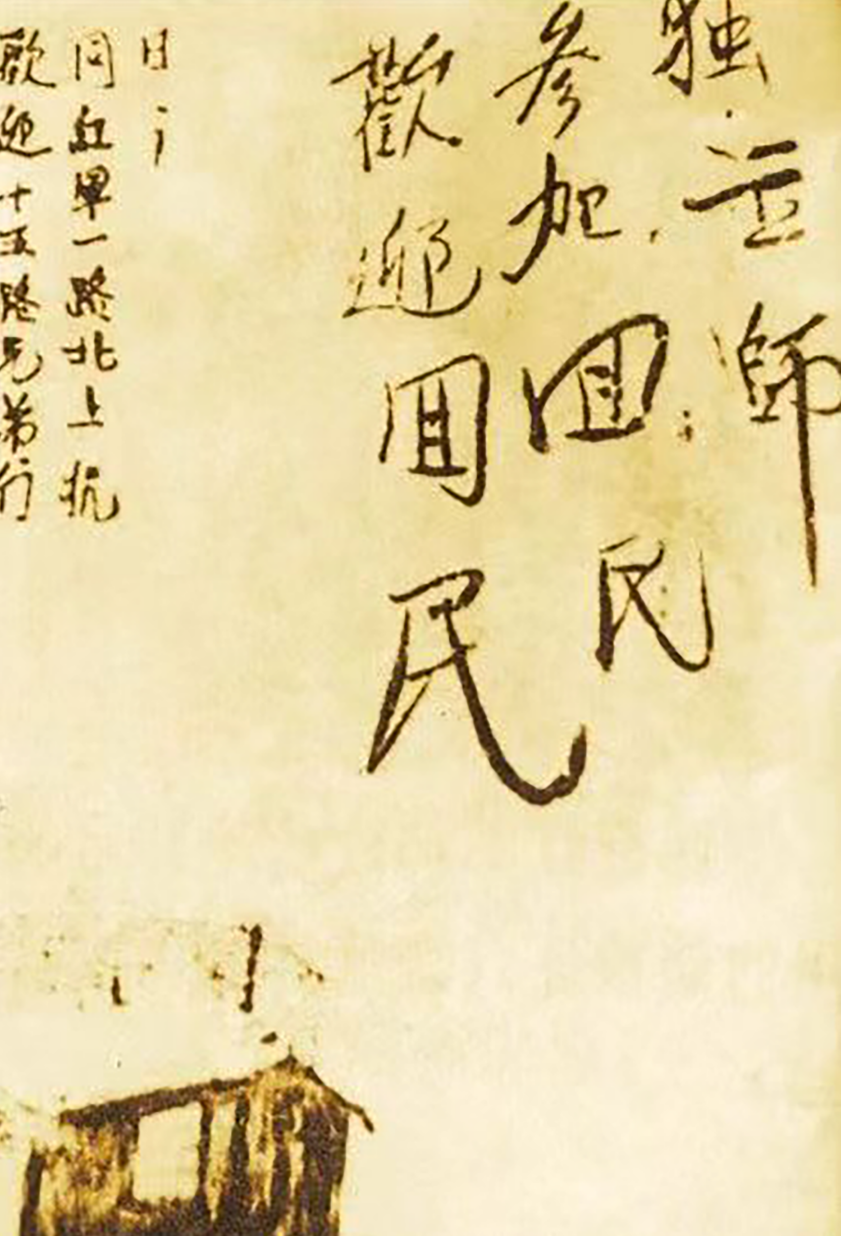 歡迎十五路兄弟们
同紅軍一路北上抗
日！
歡迎囬民
参加囬民
独立師